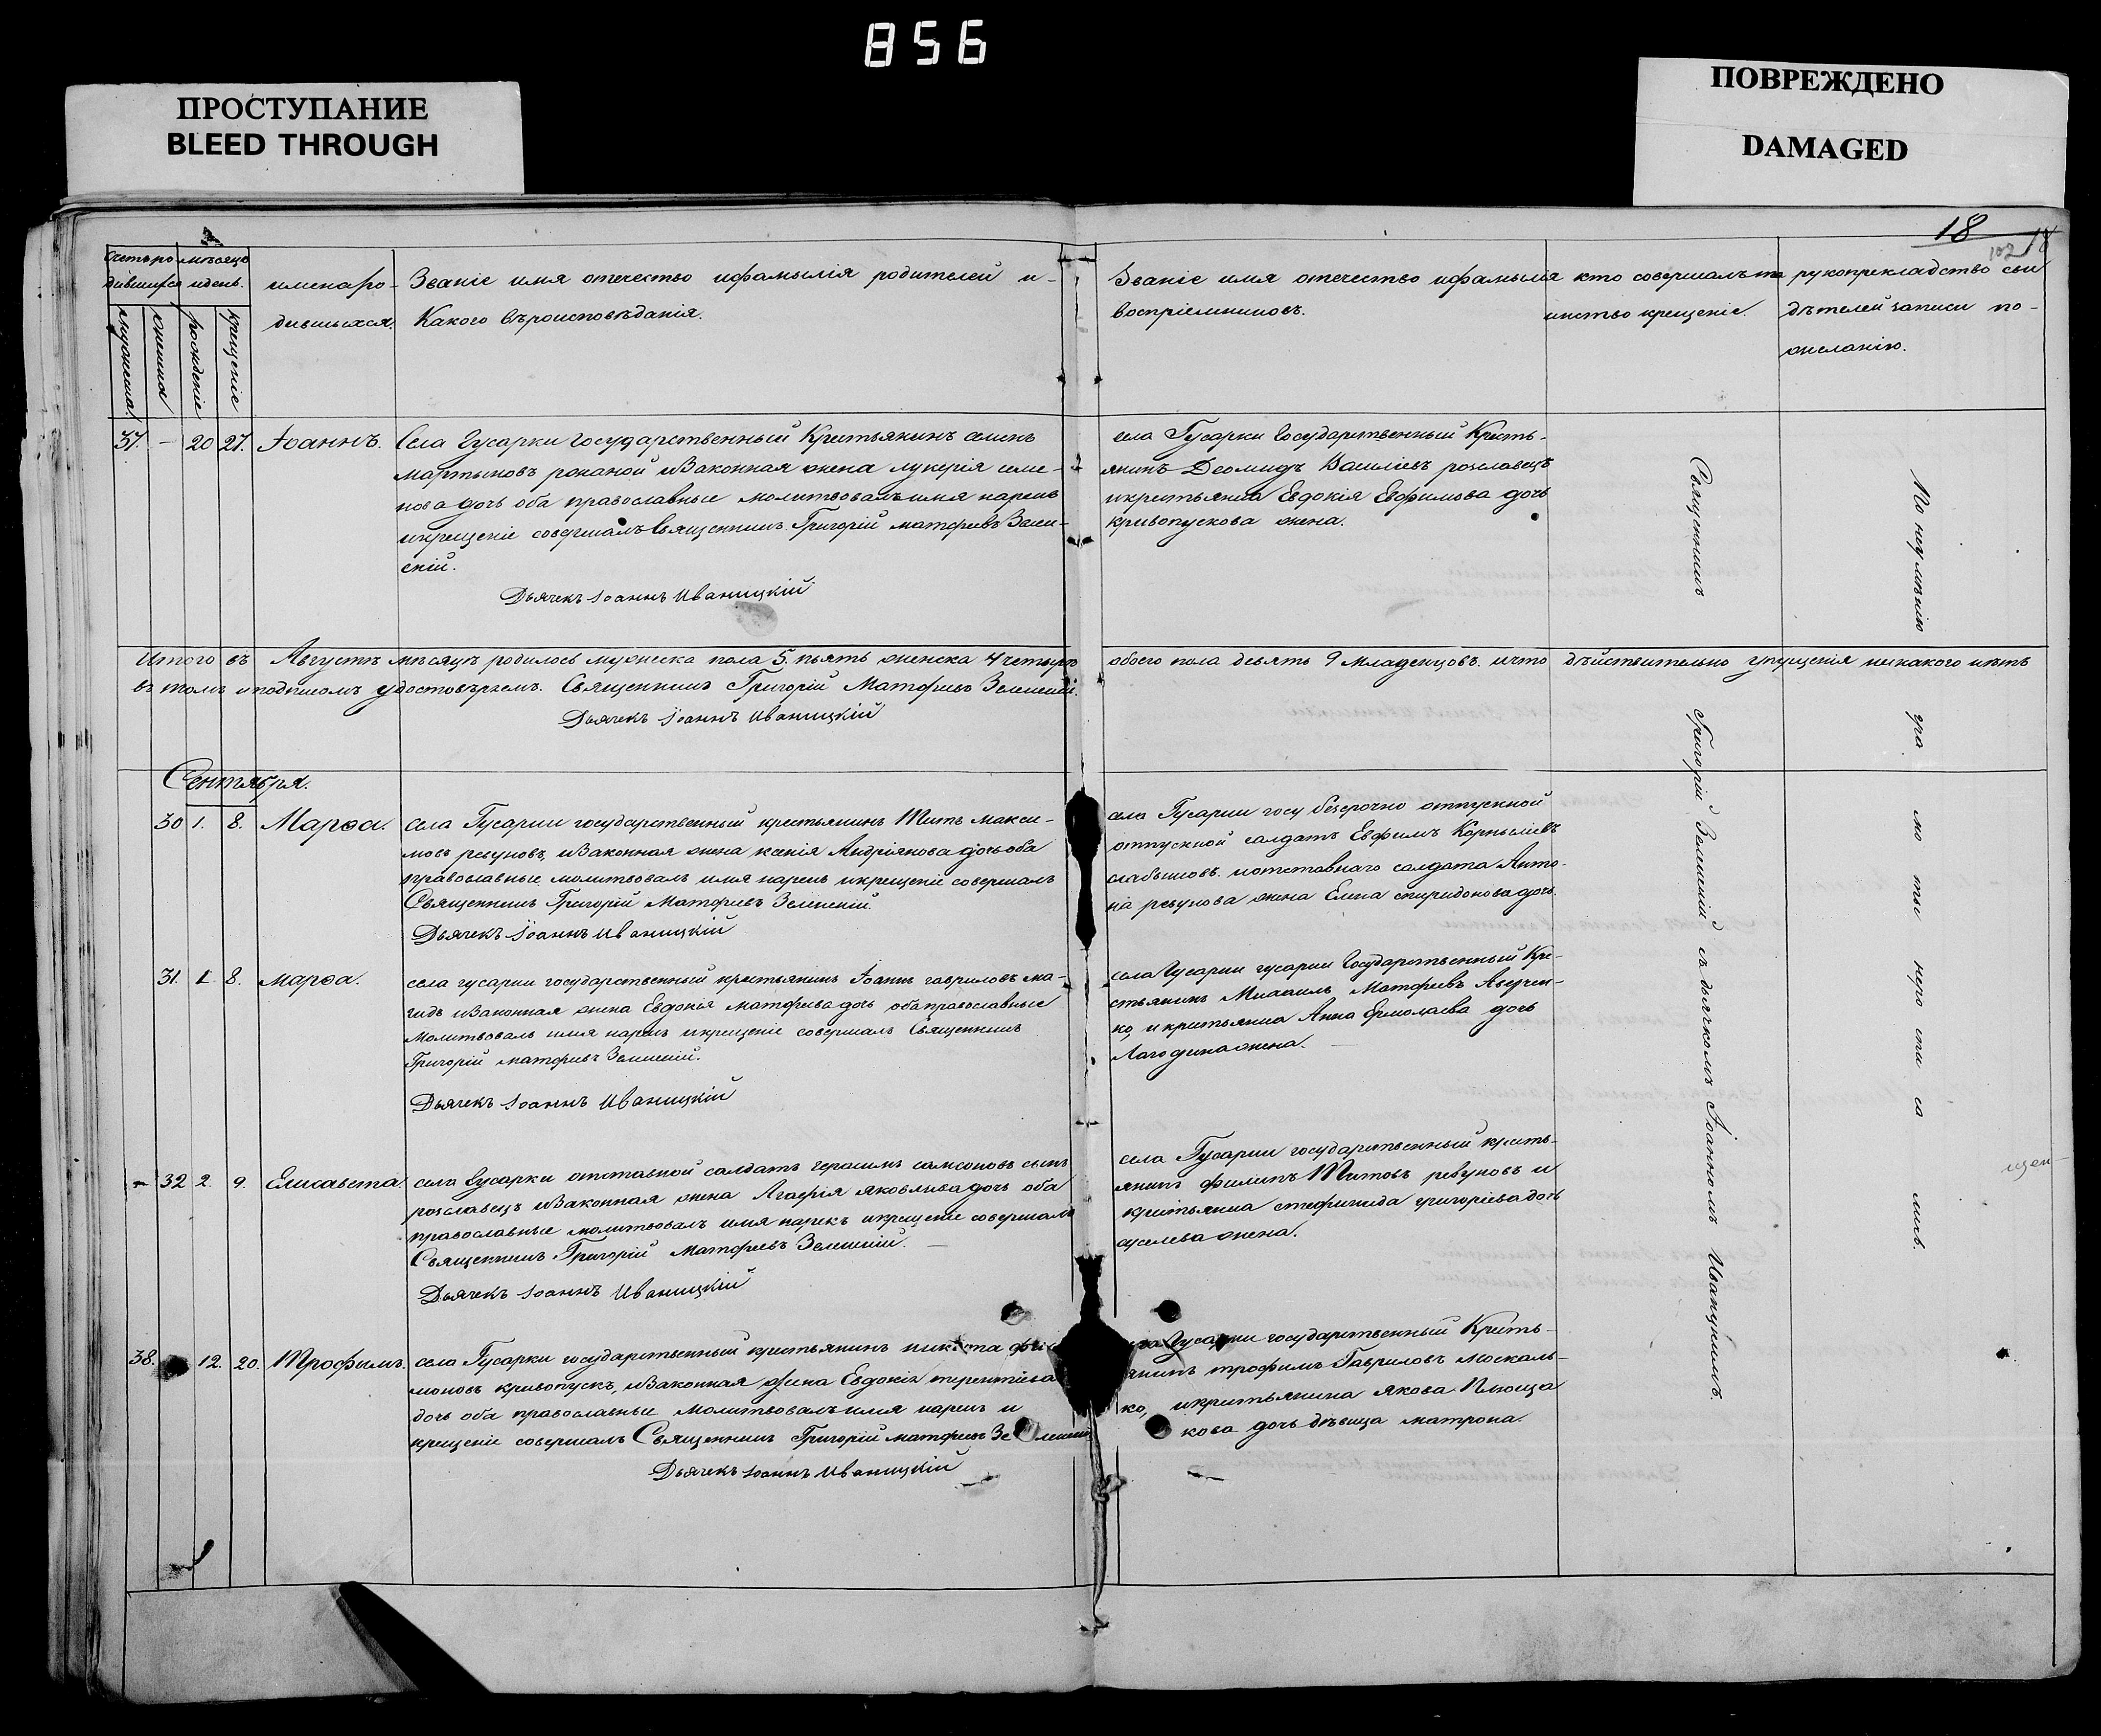 856
ПРОСТУПАНИЕ
BLEED THROUGH
ПОВРЕЖДЕНО
DAMAGED
18
102 18
Счетъ ро
дившихся
мѣсяцъ
идень.
мущескаго
женска
рожденіе
крещеніе
имена ро-
дившихся.
Званіе имя отечество ифамилія родителей и-
Какого вѣроисповѣданія.
Званіе имя отечество ифамилія
воспріемниковъ.
кто совершалъ та
инство крещеніе.
рукоприкладство сви
дѣтелей записи по-
желанію.
37. - 20 27. Іоаннъ.
Села Гусарки Государственный Крестьянинъ семенъ
мартыновъ иЗаконная жена лукерія семе-
нова дочь оба православные молитвовалъ имя нарекъ
икрещеніе совершалъ Священникъ Григорій матфеевъ Зелен-
скій.
Дьячекъ Іоаннъ Иваницкій
села Гусарки Государственный Кресть-
янинъ Деомидъ Василіевъ рославецъ
икрестьянка Евдокія Евфимова дочь
кривопускова жена.
Итого въ Августѣ мѣсяцѣ родилось мужеска пола 5. пьять женска 4 четыре
обоего пола девять 9 младенцовъ. ичто дѣйствительно упущенія никакого нѣтъ
въ томъ иподписомъ удостовѣряемъ. Священникъ Григорій Матфеевъ Зеленскій.
Дьячекъ Іоаннъ Иваницкій
Сентября.
30 1. 8. Марѳа.
села Гусарки государственный крестьянинъ Титъ макси-
мовъ ревуновъ, иЗаконная жена ксенія Андріянова дочь оба
православные молитвовалъ имя нарекъ икрещеніе совершалъ
Священникъ Григорій Матфеевъ Зеленскій.
Дьячекъ Іоаннъ Иваницкій
села Гусарки госу безсрочно отпускной
отпускной салдатъ Евфимъ Корниліевъ
слабышовъ. иотставнаго салдата Анто-
на ревунова жена Елена спиридонова дочь.
31. 1 8. марѳа.
села гусарки государственный крестьянинъ Іоаннъ гавриловъ ма-
гидъ иЗаконная жена Евдокія матфеева дочь оба православные
молитвовалъ имя нарекъ икрещеніе совершалъ Священникъ
Григорій матфеевъ Зеленскій.
Дьячекъ Іоаннъ Иваницкій
села Гусарки гусарки Государственный Кре-
стьянинъ Михаилъ Матфеевъ Аверчен-
ко, и крестьянка Анна Ермолаева дочь
Лагодина жена.
32 2. 9. Елисавета.
села Гусарки отставной салдатъ герасимъ самсоновъ сынъ
рославецъ иЗаконная жена Агафія яковлева дочь оба
православные молитвовалъ имя нарекъ икрещеніе совершалъ
Священникъ Григорій Матфеевъ Зеленскій.
Дьячекъ Іоаннъ Иваницкій
села Гусарки государственный кресть-
янинъ филипъ Титовъ ревуновъ и
крестьянка стефанида григоріева дочь
суслева жена.
38. 12. 20. Трофимъ.
села Гусарки государственный крестьянинъ никита
моновъ кривопускъ, иЗаконная жена Евдокія терентіева
дочь оба православные молитвовалъ имя нарекъ и
крещеніе совершалъ Священникъ Григорій матфеевъ Зеленскій
Дьячекъ Іоаннъ Иваницкій
Гусарки государственный Кресть-
янинъ трофимъ Гавриловъ москаль-
ко, икрестьянина якова Плюща
кова дочь дѣвица матрона.
Священникъ Григорій Зеленскій съ дьячкомъ Іоанномъ Иваницкимъ.
По неумѣнію гра мо ты него сти са
щен-